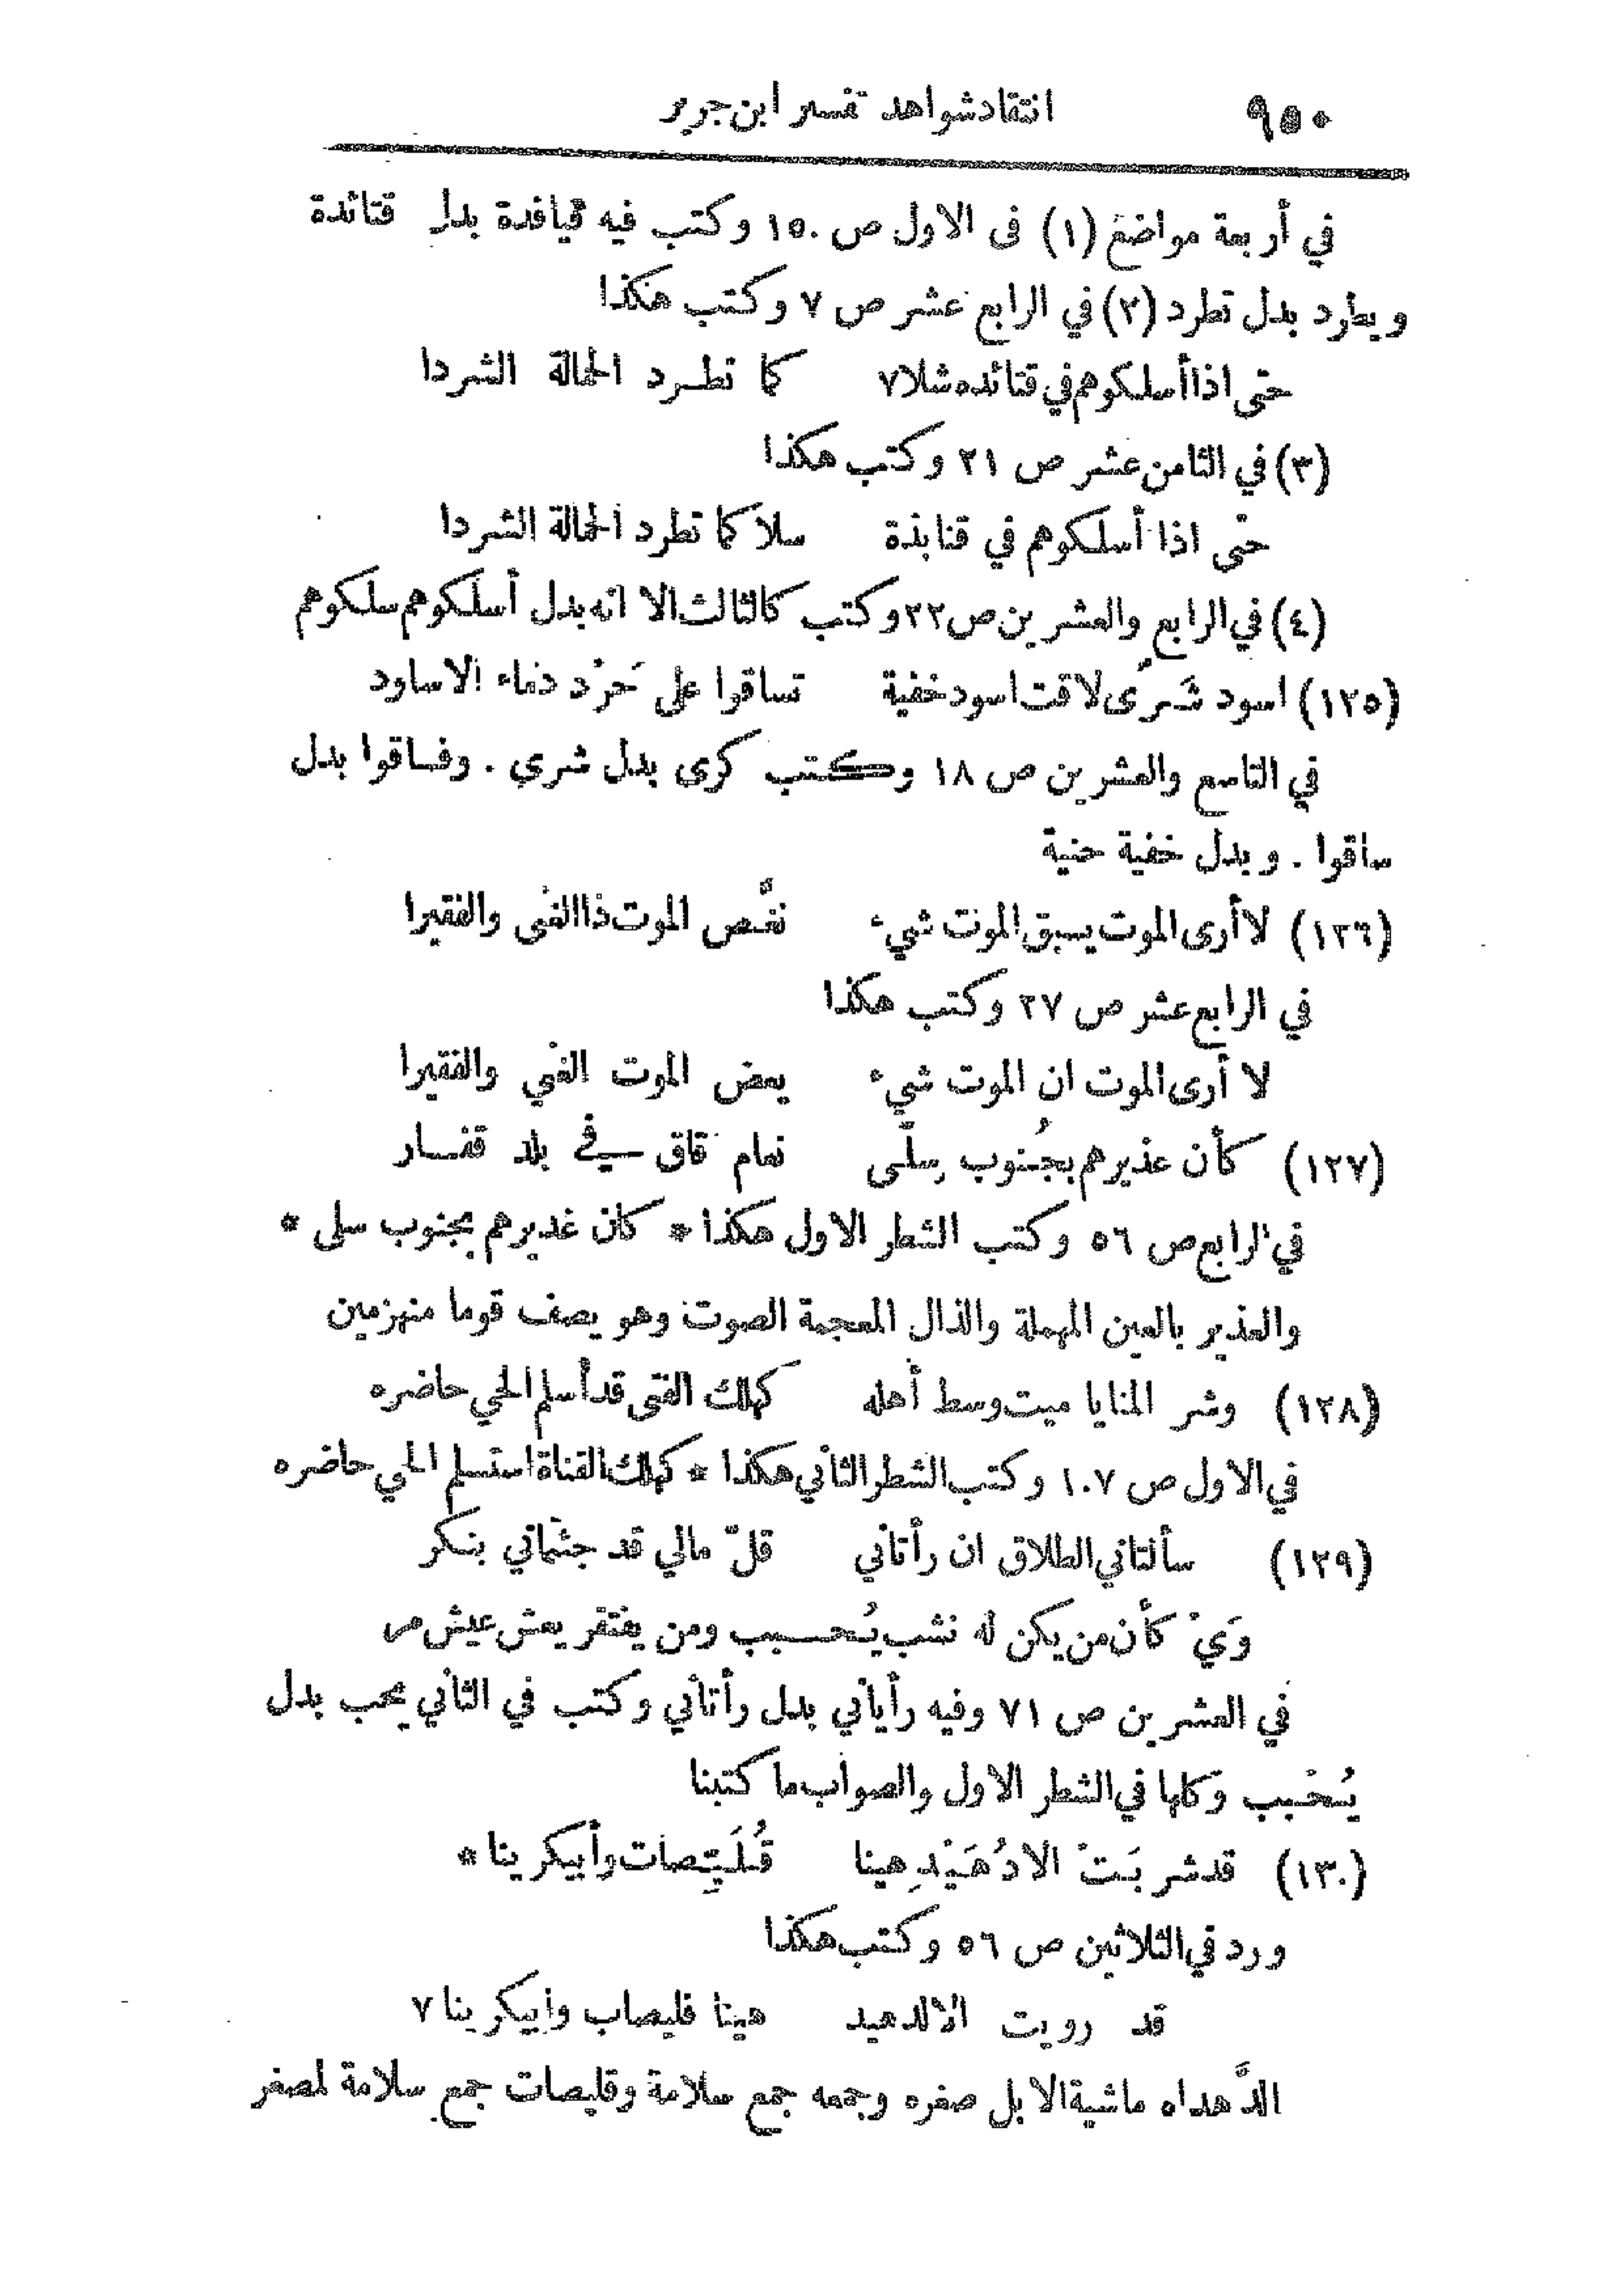 ٩٥٠ انتقاد شواهد تفسير ابن جرير
في أربعة مواضع (١) فى الاول ص ١٥٠ وكتب فيه قيافدة بدل قتائدة
ويطرد بدل تطرد (٢) في الرابع عشر ص ٧ وكتب هكذا
حتى اذا أسلكوهم في قتائده شلا٧ كما تطرد الجمالة الشردا
(٣) في الثامن عشر ص ٢١ وكتب هكذا
حتى اذا أسلكوهم في قنابذة سلا كما تطرد الجمالة الشردا
(٤) في الرابع والعشرين ص ٢٢ وكتب كالثالث الا انه بدل أسلكوهم سلكوهم
(١٢٥) اسود شَرًى لاقت اسود خفية تساقوا على حَرْد دماء الاساود
في التاسع والعشرين ص ١٨ وكتب كرى بدل شري . وفساقوا بدل
ساقوا . وبدل خفية حنية
(١٢٦) لا أرى الموت يسبق الموت شيء نغَّص الموت ذا الغنى والفقيرا
في الرابع عشر ص ٢٧ وكتب هكذا
لا أرى الموت ان الموت شيء بعض الموت الغني والفقيرا
(١٢٧) كأن عذيرهم بجُنوب سِلَّى نعام قاق في بلد قفار
في الرابع ص ٥٦ وكتب الشطر الاول هكذا * كان غديرهم بجنوب سلى *
والعذير بالعين المهملة والذال المعجمة الصوت وهو يصف قوما منهزمين
(١٢٨) وشر المنايا ميت وسط أهله كهلك الفتى قد أسلم الحي حاضره
في الاول ص ١٠٧ وكتب الشطر الثاني هكذا * كهلك القناة استسلم الحي حاضره
(١٢٩) سألتاني الطلاق ان رأتاني قلّ مالي قد جئتماني بنكر
وَيْ كأن من يكن له نشب يُحبب ومن يفتقر يعش عيش مر
في العشرين ص ٧١ وفيه رأياني بدل رأتاني وكتب في الثاني يحب بدل
يُحْبب وكلها في الشطر الاول والصواب ما كتبنا
(١٣٠) قد شربَتْ الادُهَيْدِهينا قُلَيِّصات وأبيكرينا *
ورد في الثلاثين ص ٥٦ وكتب هكذا
قد رويت الالدهيد هينا قليصاب وابيكرينا ٧
الدَّهداه ماشية الابل صغره وجمعه جمع سلامة وقليصات جمع سلامة لمصغر